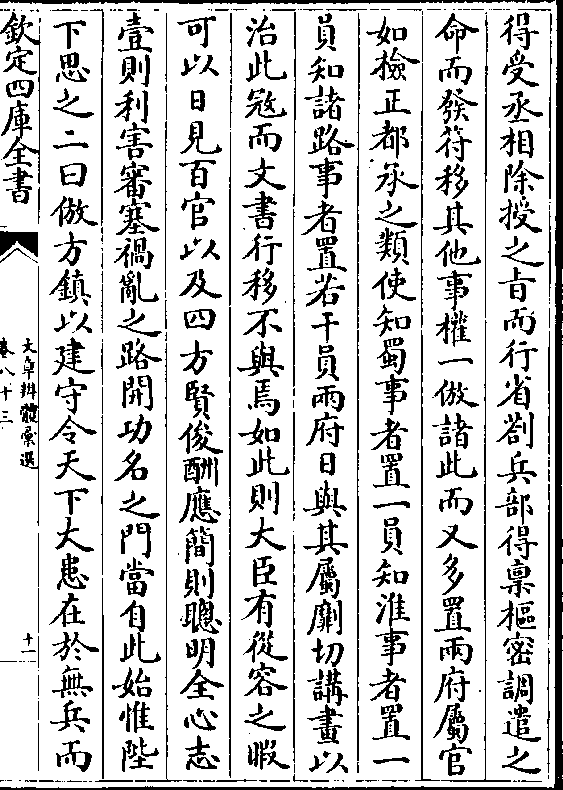 得受丞相除授之旨而行省劄兵部得稟樞密調遣之
命而發符移其他事權一倣諸此而又多置兩府屬官
如檢正都承之類使知蜀事者置一員知淮事者置一
員知諸路事者置若干員兩府日與其屬劘切講畫以
治此㓂而文書行移不與焉如此則大臣有從容之暇
可以日見百官以及四方賢俊酬應簡則聰明全心志
壹則利害審塞禍亂之路開功名之門當自此始惟陛
下思之二曰倣方鎮以建守令天下大患在於無兵而
欽定四庫全書
文章辨體彚選
卷八十三
十一